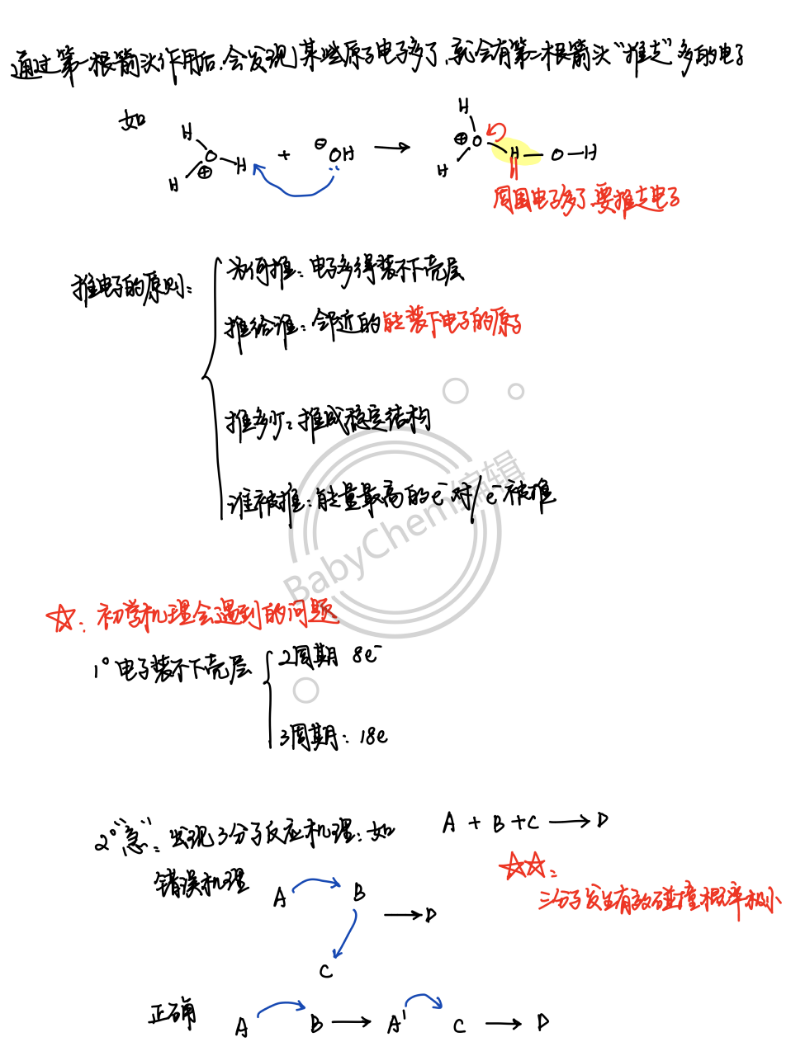 通过第一根箭头作用后,会发现某些原子电子多了,就会有第二根箭头“推走”多的电子
如
H
H O H + ⊖OH → H O H — O — H
H ⊕
H ⊕
周围电子多了,要推走电子
推电子的原则:
为何推:电子多得装不下壳层
推给谁:邻近的能装下电子的原子
推多少:推成稳定结构
谁被推:能量最高的e⁻对/e⁻被推
BabyChem编辑
☆:初学机理会遇到的问题
1° 电子装不下壳层
2周期 8e⁻
3周期:18e
2°“急”:出现3分子反应机理:如 A + B + C → D
☆☆:
三分子发生有效碰撞概率极小
错误机理 A B → D
C
正确 A B → A' C → D